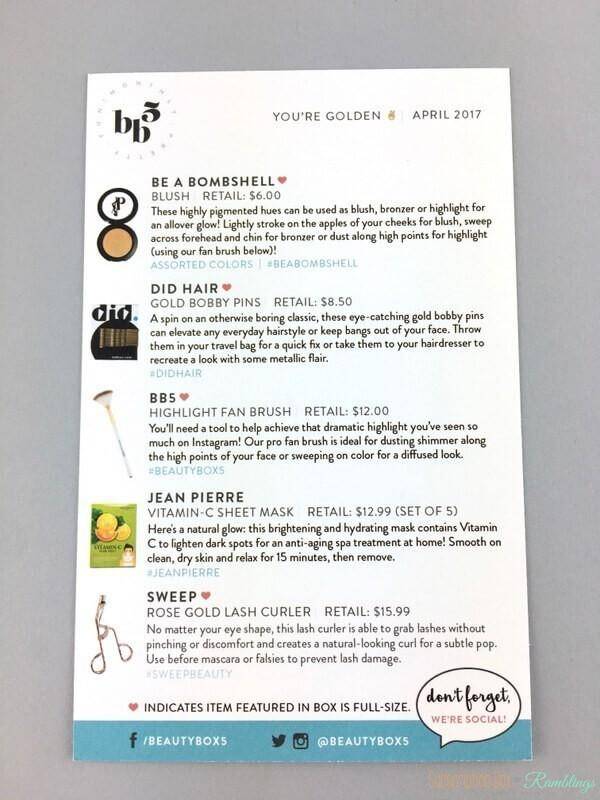 bb5
YOU'RE GOLDEN ✌ | APRIL 2017
BE A BOMBSHELL ♥
BLUSH RETAIL: $6.00
These highly pigmented hues can be used as blush, bronzer or highlight for
an allover glow! Lightly stroke on the apples of your cheeks for blush, sweep
across forehead and chin for bronzer or dust along high points for highlight
(using our fan brush below)!
ASSORTED COLORS | #BEABOMBSHELL
did.
DID HAIR ♥
GOLD BOBBY PINS RETAIL: $8.50
A spin on an otherwise boring classic, these eye-catching gold bobby pins
can elevate any everyday hairstyle or keep bangs out of your face. Throw
them in your travel bag for a quick fix or take them to your hairdresser to
recreate a look with some metallic flair.
#DIDHAIR
BB5 ♥
HIGHLIGHT FAN BRUSH RETAIL: $12.00
You'll need a tool to help achieve that dramatic highlight you've seen so
much on Instagram! Our pro fan brush is ideal for dusting shimmer along
the high points of your face or sweeping on color for a diffused look.
#BEAUTYBOX5
VITAMIN-C
JEAN PIERRE
VITAMIN-C SHEET MASK | RETAIL: $12.99 (SET OF 5)
Here's a natural glow: this brightening and hydrating mask contains Vitamin
C to lighten dark spots for an anti-aging spa treatment at home! Smooth on
clean, dry skin and relax for 15 minutes, then remove.
#JEANPIERRE
SWEEP ♥
ROSE GOLD LASH CURLER RETAIL: $15.99
No matter your eye shape, this lash curler is able to grab lashes without
pinching or discomfort and creates a natural-looking curl for a subtle pop.
Use before mascara or falsies to prevent lash damage.
#SWEEPBEAUTY
♥ INDICATES ITEM FEATURED IN BOX IS FULL-SIZE.
don't forget,
WE'RE SOCIAL!
/BEAUTYBOX5 @BEAUTYBOX5
Ramblings